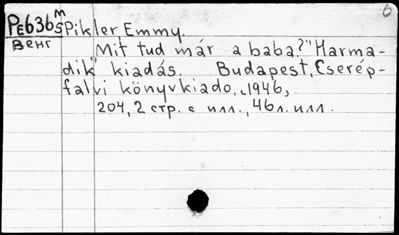 6
PE636 M/S Pikler, Emmy.
Венг
"Mit tud már a baba?" Harma-
dik kiadás. Budapest, Cserép-
falvi könyvkiado, 1946,
204, 2 стр. с илл., 46 л. илл.